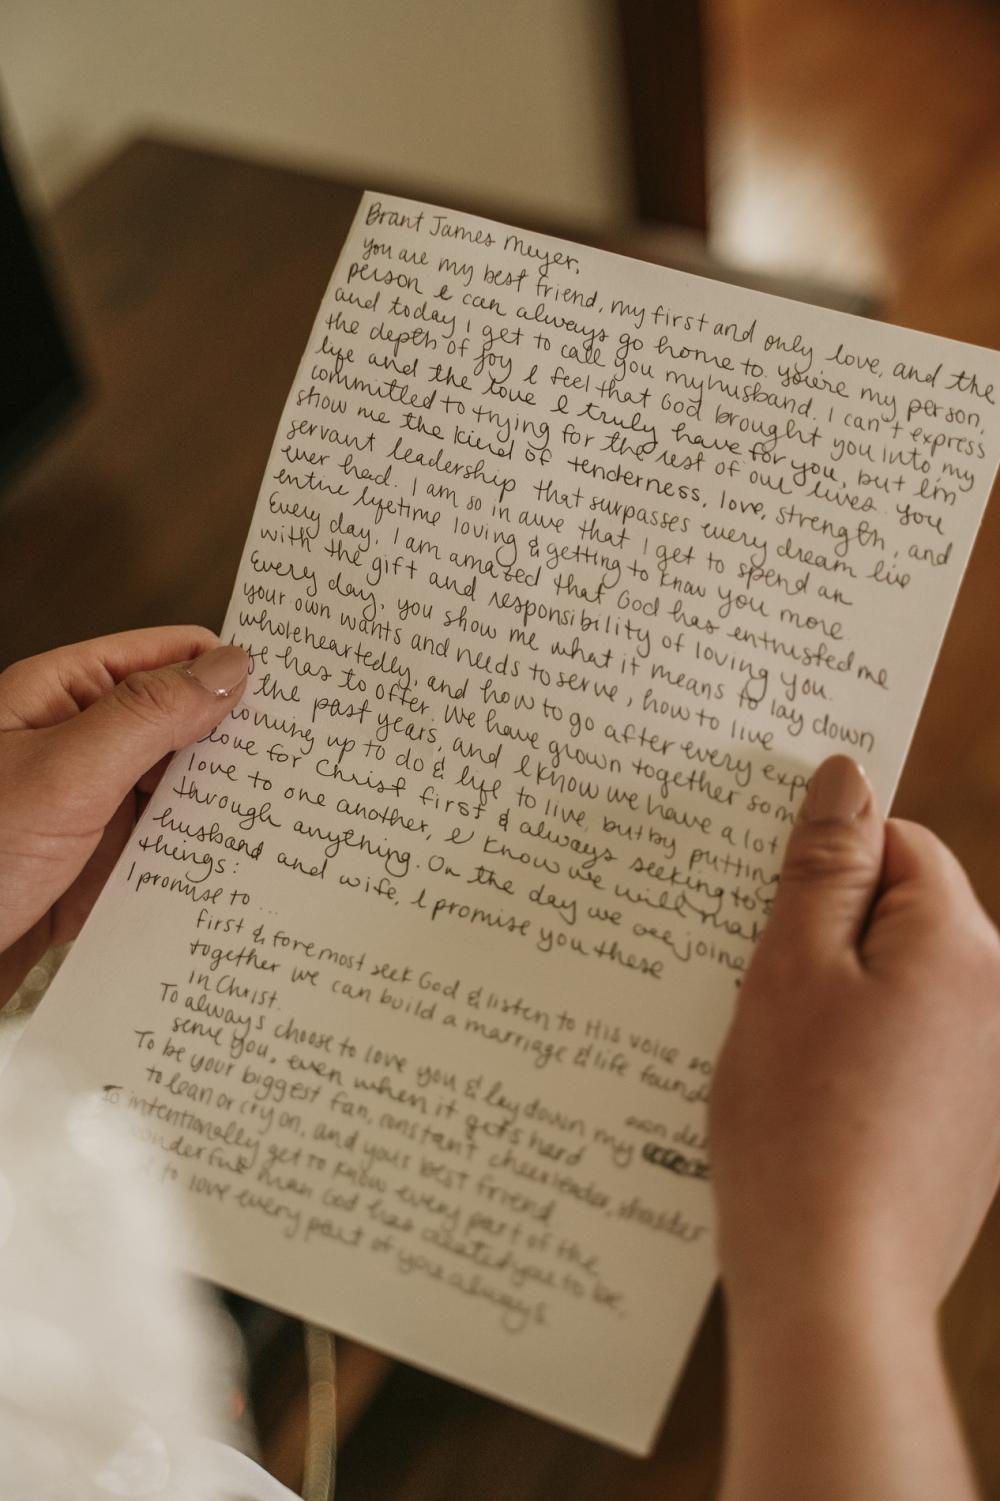 Brant James Meyer,
you are my best friend, my first and only love, and the
person I can always go home to. you're my person,
and today I get to call you my husband. I can't express
the depth of joy I feel that God brought you into my
life and the love I truly have for you, but I'm
committed to trying for the rest of our lives. You
show me the kind of tenderness, love, strength, and
servant leadership that surpasses every dream I've
ever had. I am so in awe that I get to spend an
entire lifetime loving & getting to know you more.
Every day, I am amazed that God has entrusted me
with the gift and responsibility of loving you.
Every day, you show me what it means to lay down
your own wants and needs to serve, how to live
wholeheartedly, and how to go after every exp
life has to offer. We have grown together so
the past years, and I know we have a lot
up to do & life to live, but by putting
love for Christ first & always seeking to
love to one another, I know we will
through anything. On the day we are joine
husband and wife, I promise you these
things:
I promise to ...
first & foremost seek God & listen to His voice so
together we can build a marriage & life found
in Christ.
To always choose to love you & lay down my own
serve you, even when it gets hard
To be your biggest fan, constant cheerleader, shoulder
to lean or cry on, and your best friend
To intentionally get to know every part of the
wonderful man God has created you to be,
to love every part of you always.